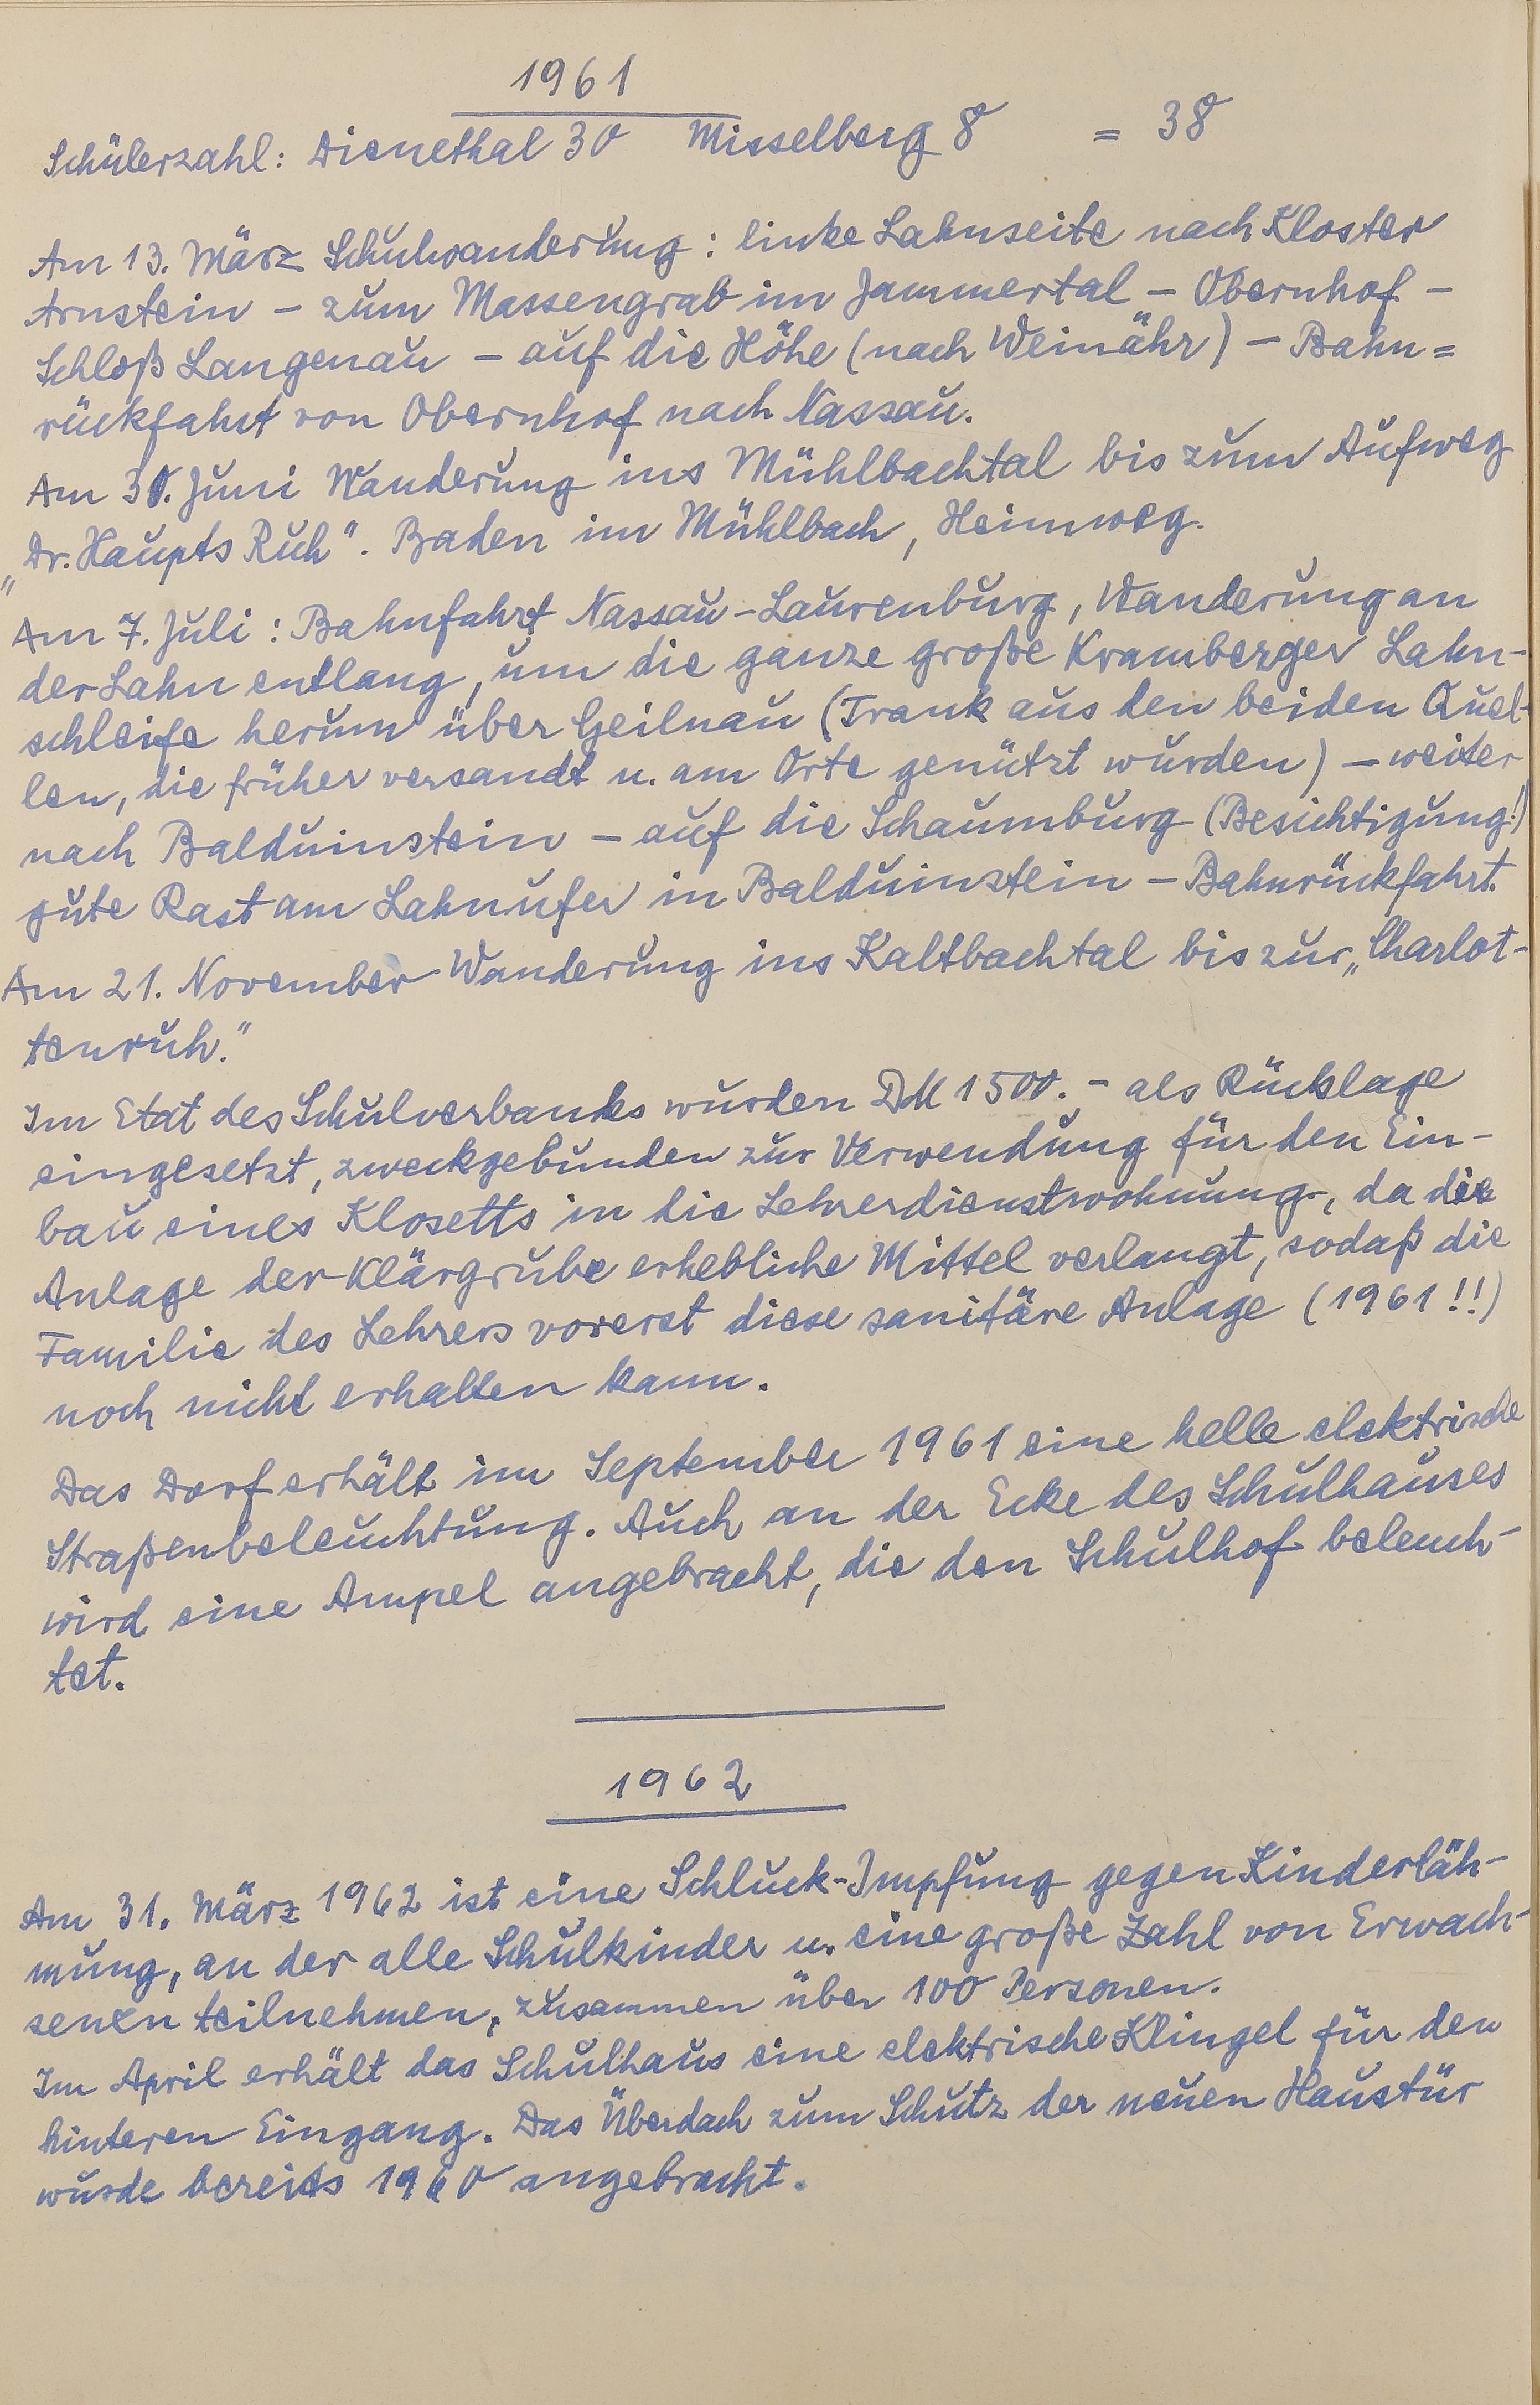 1961
Schülerzahl: Dienethal 30 Misselberg 8 = 38
Am 13. März Schulwanderung: linke Lahnseite nach Kloster
Arnstein – zum Massengrab im Jammertal – Obernhof –
Schloß Langenau – auf die Höhe (nach Weinähr) – Bahn=
rückfahrt von Obernhof nach Nassau.
Am 30. Juni Wanderung ins Mühlbachtal bis zum Aufweg
„Dr. Haupts Ruh". Baden im Mühlbach, Heimweg.
Am 7. Juli: Bahnfahrt Nassau–Laurenburg, Wanderung an
der Lahn entlang, um die ganze große Kramberger Lahn-
schleife herum über Geilnau (Trank aus den beiden Quel-
len, die früher versandt u. am Orte genützt wurden) – weiter
nach Balduinstein – auf die Schaumburg (Besichtigung!)
gute Rast am Lahnufer in Balduinstein – Bahnrückfahrt.
Am 21. November Wanderung ins Kaltbachtal bis zur „Charlot-
tenruh."
Im Etat des Schulverbandes wurden DM 1500.- als Rücklage
eingesetzt, zweckgebunden zur Verwendung für den Ein-
bau eines Klosetts in die Lehrerdienstwohnung, da die
Anlage der Klärgrube erhebliche Mittel verlangt, sodaß die
Familie des Lehrers vorerst diese sanitäre Anlage (1961!!)
noch nicht erhalten kann.
Das Dorf erhält im September 1961 eine helle elektrische
Straßenbeleuchtung. Auch an der Ecke des Schulhauses
wird eine Ampel angebracht, die den Schulhof beleuch-
tet.
1962
Am 31. März 1962 ist eine Schluck-Impfung gegen Kinderläh-
mung, an der alle Schulkinder u. eine große Zahl von Erwach-
senen teilnehmen, zusammen über 100 Personen.
Im April erhält das Schulhaus eine elektrische Klingel für den
hinteren Eingang. Das Überdach zum Schutz der neuen Haustür
wurde bereits 1960 angebracht.